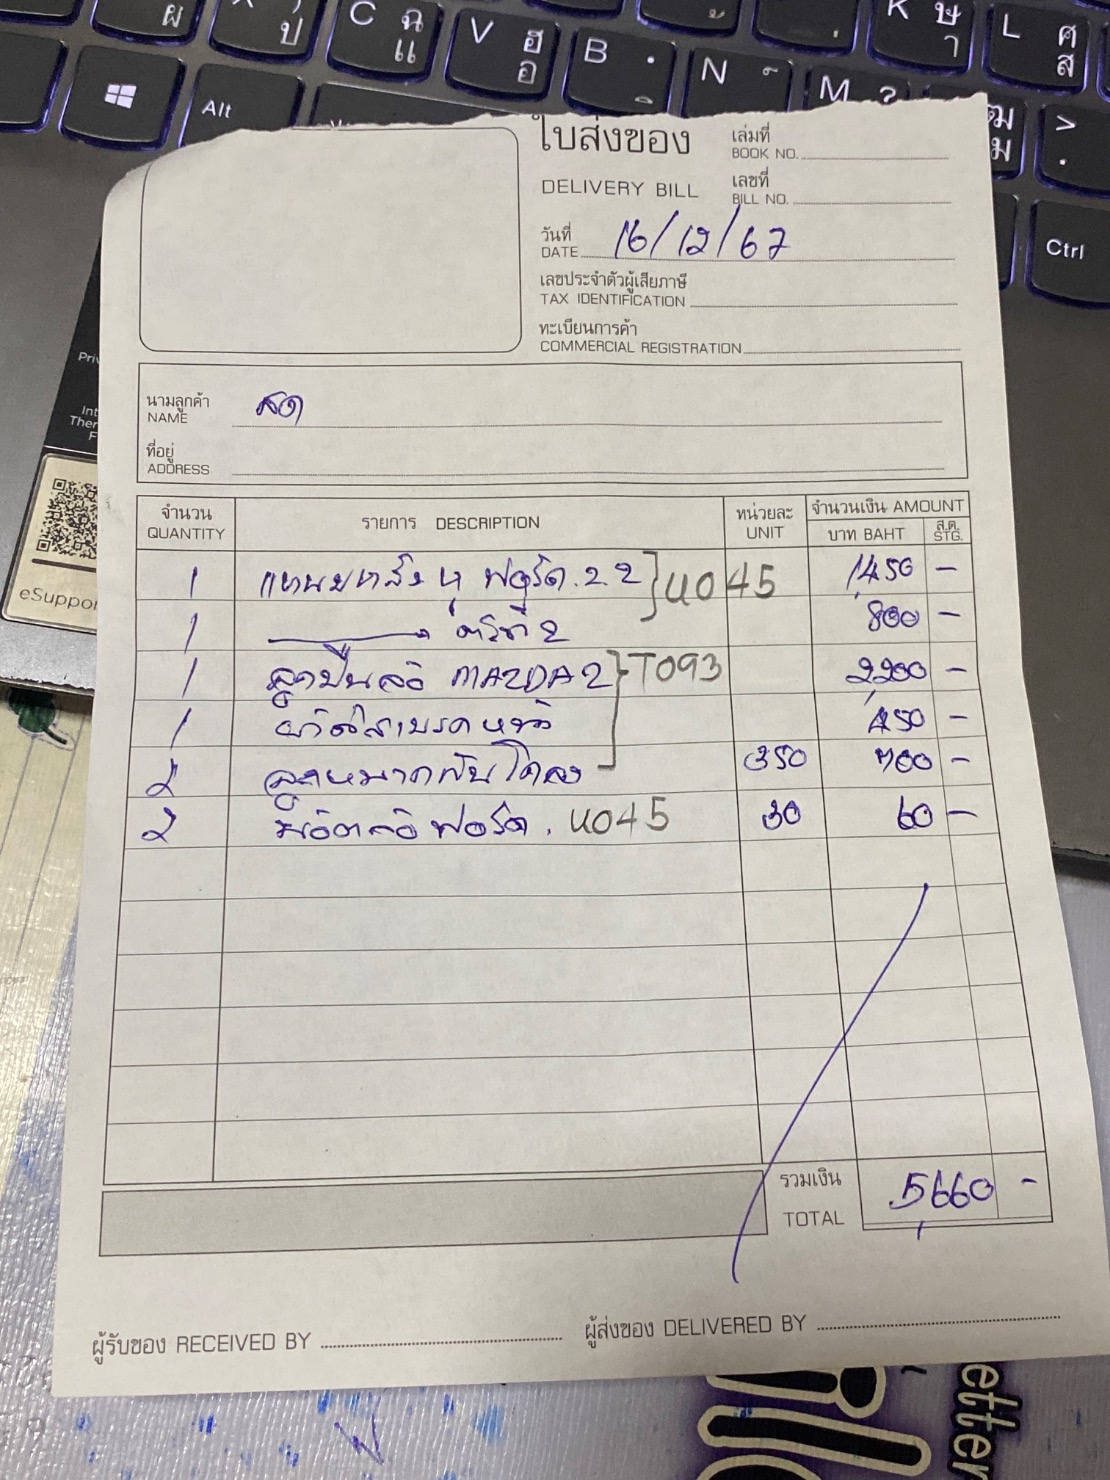 C ฉ แ
V ฮ อ
B
N
M ?
K ษ า
L ศ ส
Alt
Ctrl
ใบส่งของ
DELIVERY BILL
เล่มที่
BOOK NO.
เลขที่
BILL NO.
วันที่
DATE 16/12/67
เลขประจำตัวผู้เสียภาษี
TAX IDENTIFICATION
ทะเบียนการค้า
COMMERCIAL REGISTRATION
นามลูกค้า
NAME สด
ที่อยู่
ADDRESS
จำนวน รายการ DESCRIPTION หน่วยละ จำนวนเงิน AMOUNT
QUANTITY UNIT บาท BAHT ส.ต. STG.
1 ฟอร์ด 2.2 U045 1,450 –
1 800 –
1 ลูกปืนล้อ MAZDA2 T093 2,200 –
1 450 –
2 ลูกหมากกันโคลง 350 700 –
2 น๊อตล้อฟอร์ด. U045 30 60 –
รวมเงิน 5,660 –
TOTAL
ผู้รับของ RECEIVED BY ผู้ส่งของ DELIVERED BY
eSuppo
etter